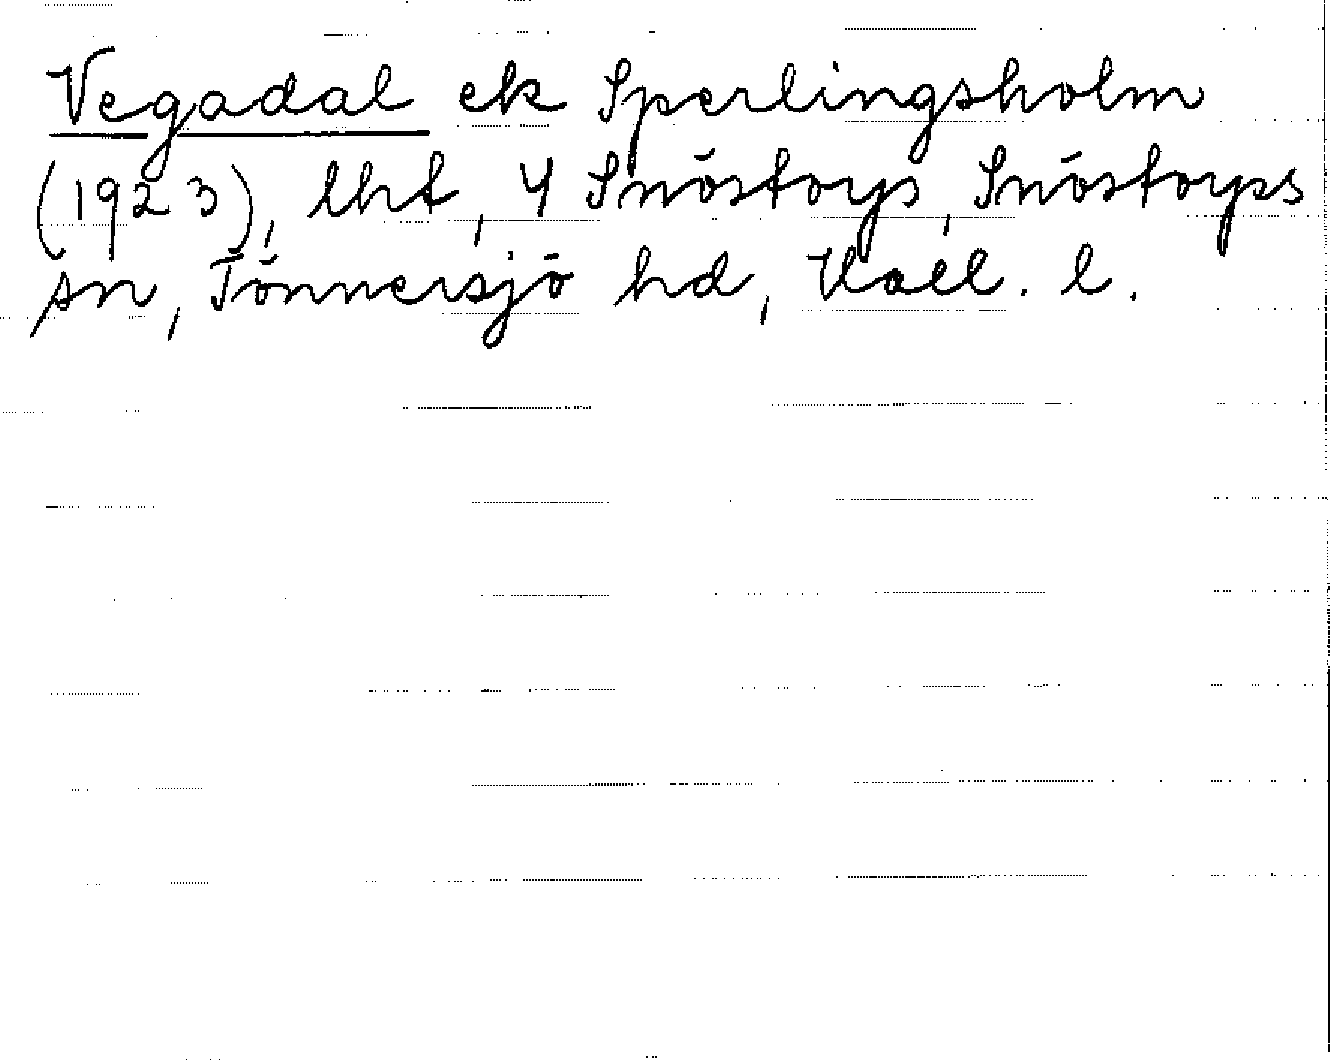 Vegadal ek Sperlingsholm
(1923), lht, 4 Snöstorp, Snöstorps
sn, Tönnersjö hd, Hall. l.